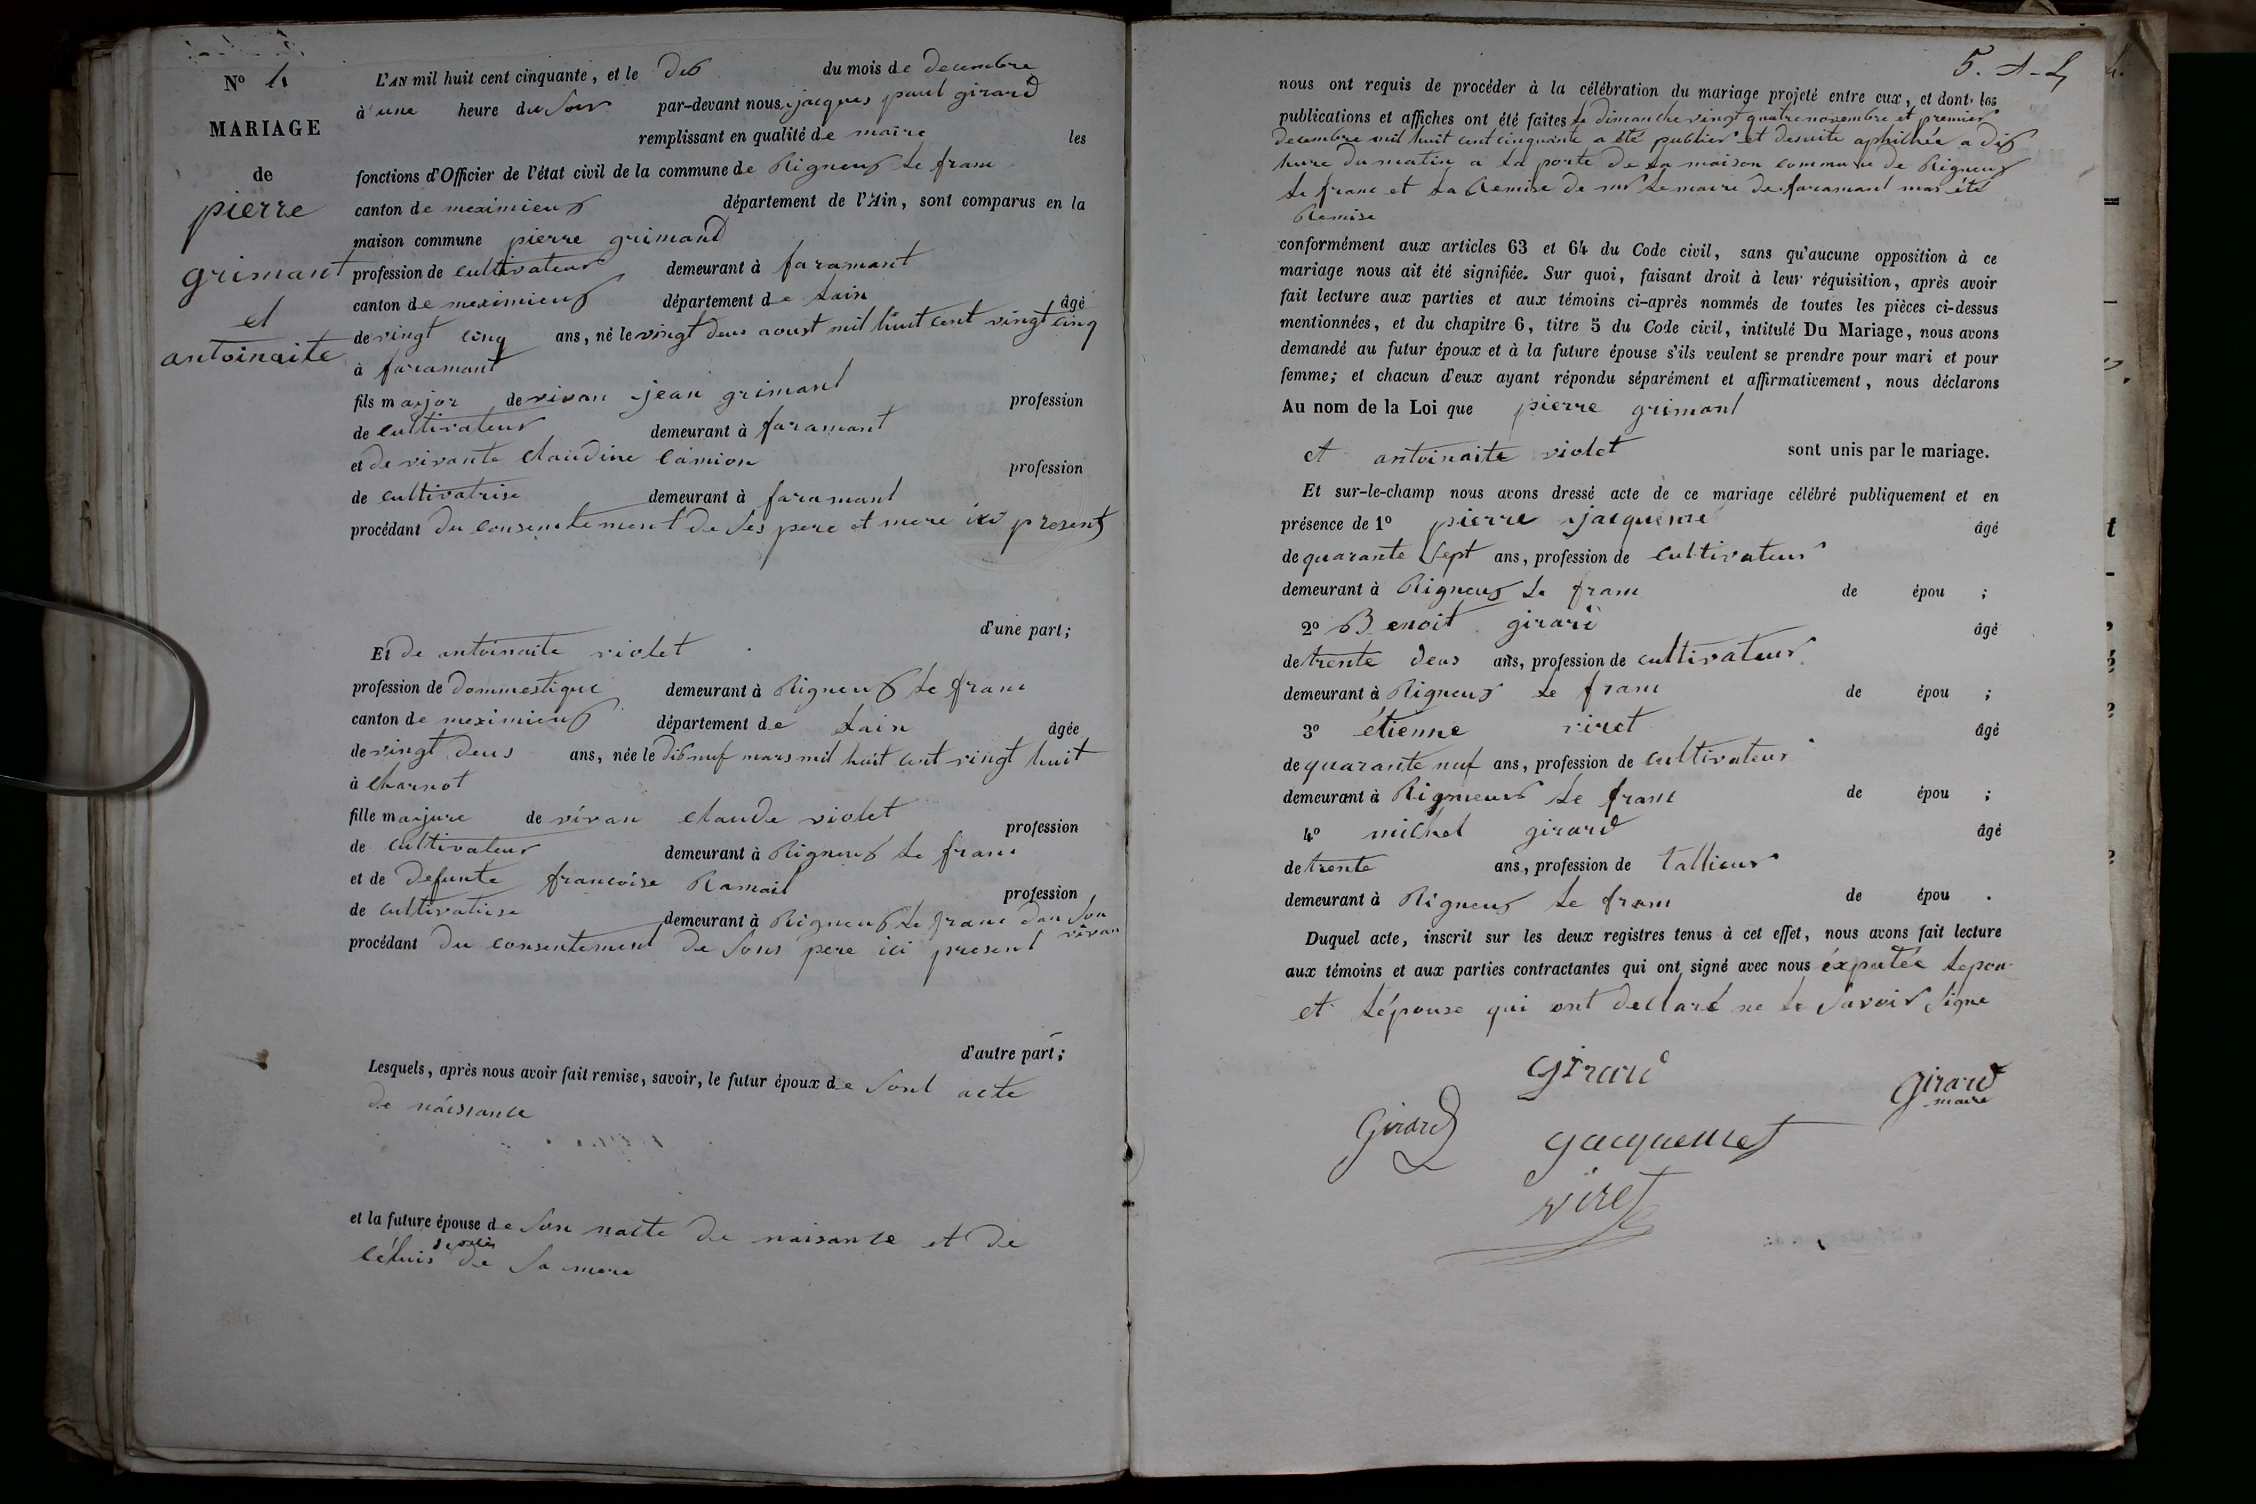 N° 4
MARIAGE
de
pierre
grimant
et
antoinaite
L'AN mil huit cent cinquante, et le dis du mois de decembre
à une heure du soir par-devant nous jacques paul girard
remplissant en qualité de maire les
fonctions d'Officier de l'état civil de la commune de Rigneux le franc
canton de meximieux département de l'Ain, sont comparus en la
maison commune pierre grimand
profession de cultivateur demeurant à faramant
canton de meximieux département de Lain âgé
de vingt cinq ans, né le vingt deus aoust mil huit cent vingt cinq
à faramant
fils major de vivan jean grimant profession
de cultivateur demeurant à faramant
et de vivante claudine camion profession
de cultivatrise demeurant à faramant
procédant du consentement de ses pere et mere ici present
d'une part;
Et de antoinaite violet
profession de dommestique demeurant à Rigneux le franc
canton de meximieux département de Lain âgée
de vingt deus ans, née le disneuf mars mil huit cent vingt huit
à charnot
fille majure de vivan claude violet profession
de cultivateur demeurant à Rigneux le franc
et de defunte francoise Ramail profession
de cultivatrise demeurant à Rigneux le franc dan son vivan
procédant du consentement de sons pere ici present
d'autre part;
Lesquels, après nous avoir fait remise, savoir, le futur époux de sont acte
de naissance
et la future épouse de son nacte de naisance et de
célui de décés de sa mere
5. A-L
nous ont requis de procéder à la célébration du mariage projeté entre eux, et dont les
publications et affiches ont été faites le dimanche vingt quatre novembre et premier
decembre mil huit cent cinquante a été publier et desuite aphichée a dix
hure du matin a la porte de la maison commune de Rigneux
le franc et la Remise de mr le maire de faramant mas été
Remise
conformément aux articles 63 et 64 du Code civil, sans qu'aucune opposition à ce
mariage nous ait été signifiée. Sur quoi, faisant droit à leur réquisition, après avoir
fait lecture aux parties et aux témoins ci-après nommés de toutes les pièces ci-dessus
mentionnées, et du chapitre 6, titre 5 du Code civil, intitulé Du Mariage, nous avons
demandé au futur époux et à la future épouse s'ils veulent se prendre pour mari et pour
femme; et chacun d'eux ayant répondu séparément et affirmativement, nous déclarons
Au nom de la Loi que pierre grimant
et antoinaite violet sont unis par le mariage.
Et sur-le-champ nous avons dressé acte de ce mariage célébré publiquement et en
présence de 1° pierre jacqueme âgé
de quarante sept ans, profession de cultivateur
demeurant à Rigneux le franc de épou ;
2° Benoit girard âgé
de trente deus ans, profession de cultivateur
demeurant à Rigneux le franc de épou ;
3° étienne viret âgé
de quarante nuf ans, profession de cultivateur
demeurant à Rigneux le franc de épou ;
4° michel girard âgé
de trente ans, profession de tallieur
demeurant à Rigneux le franc de épou .
Duquel acte, inscrit sur les deux registres tenus à cet effet, nous avons fait lecture
aux témoins et aux parties contractantes qui ont signé avec nous éxpetée lepou
et lépouse qui ont declaré ne le savoir signe
Girard
Girard
maire
Girard
Gacquemet
viret